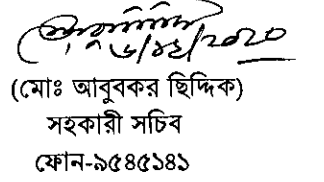 ৬/১২/২০২০
(মোঃ আবুবকর ছিদ্দিক)
সহকারী সচিব
ফোন-৯৫৪৫১৪১